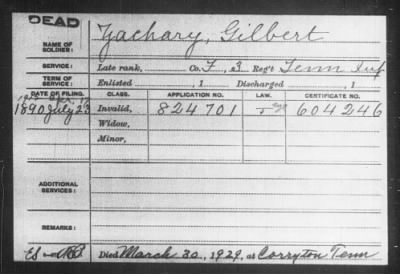 DEAD
NAME OF SOLDIER: Zachary, Gilbert
SERVICE: Late rank, Co. F, 3 Reg't Tenn Inf
TERM OF SERVICE: Enlisted , 1 Discharged , 1
DATE OF FILING. CLASS. APPLICATION NO. LAW. CERTIFICATE NO.
1890 July 23 Invalid, 824701 604246
Widow,
Minor,
ADDITIONAL SERVICES:
REMARKS:
Died March 30, 1929, at Corryton Tenn